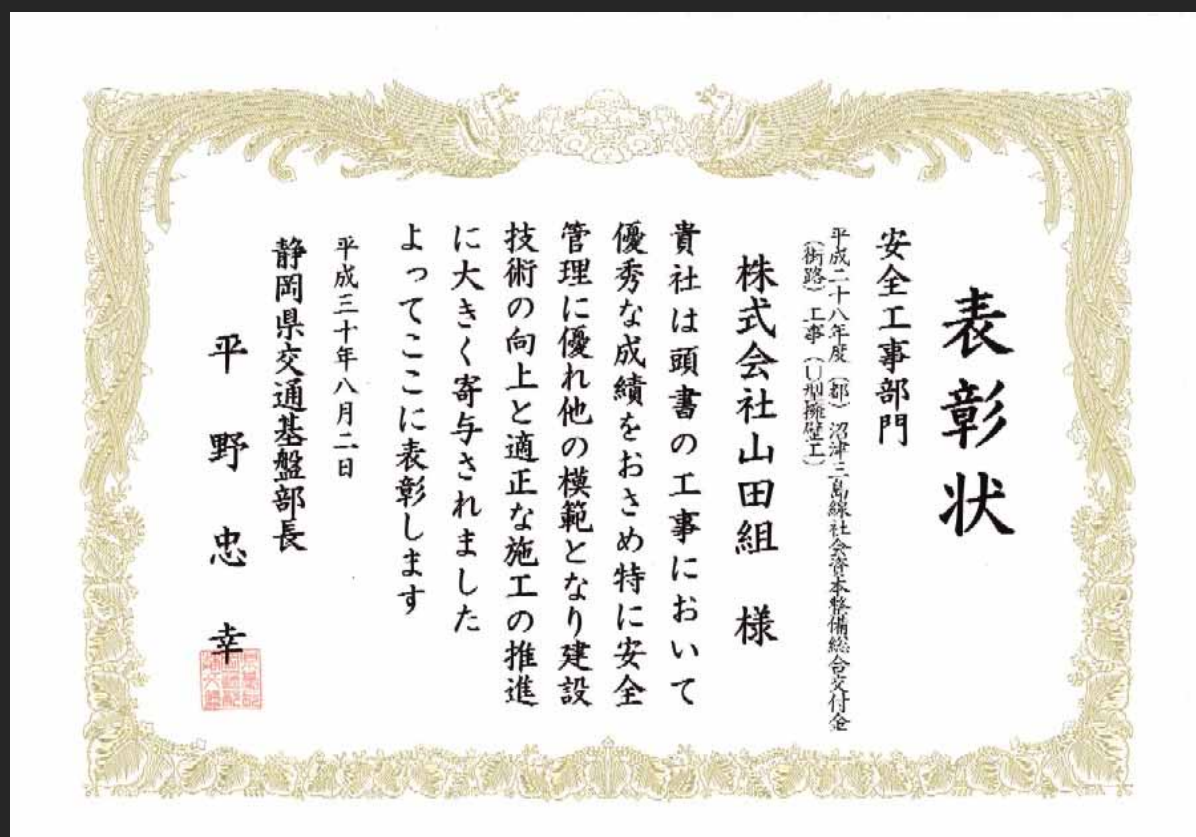 表彰状
安全工事部門
平成二十八年度(都)沼津三島線社会資本整備総合交付金
(街路)工事(U型擁壁工)
株式会社山田組 様
貴社は頭書の工事において
優秀な成績をおさめ特に安全
管理に優れ他の模範となり建設
技術の向上と適正な施工の推進
に大きく寄与されました
よってここに表彰します
平成三十年八月二日
静岡県交通基盤部長
平野忠幸